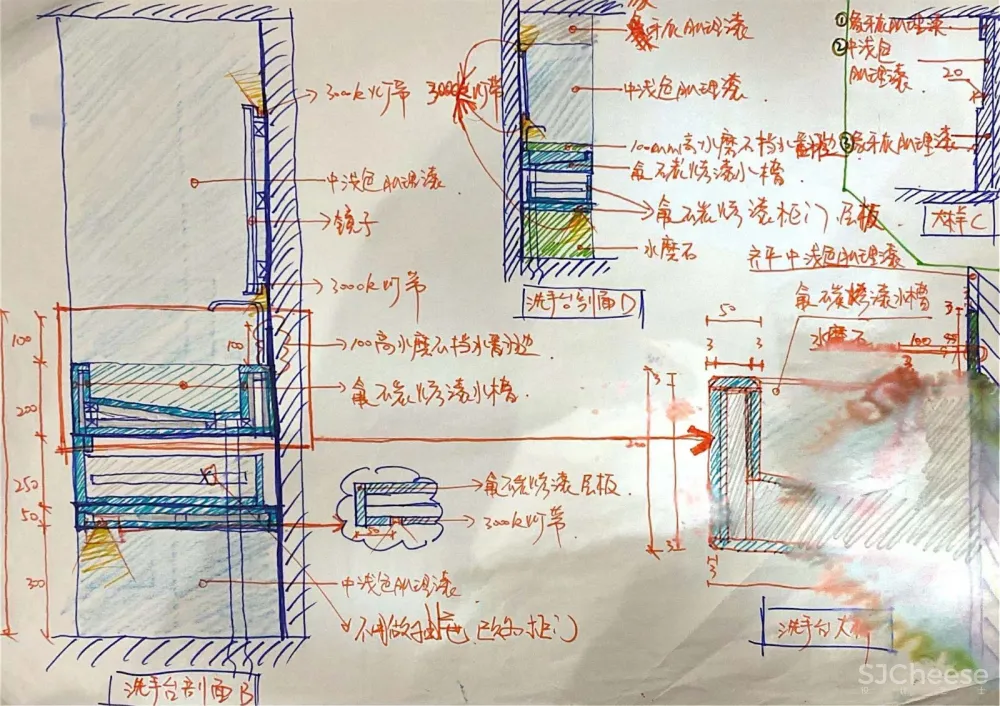 3000k灯带
中浅色肌理漆
镜子
3000k灯带
100高水磨石挡水翻边
氟碳烤漆水槽
100
200
250
50
300
100
氟碳烤漆层板
3000k灯带
50
中浅色肌理漆
不用做抽屉 已改为柜门
洗手台剖面B
象牙灰肌理漆
3000k灯带
中浅色肌理漆
100mm高水磨石挡水翻边
氟碳烤漆水槽
氟碳烤漆柜门 层板
水磨石
洗手台剖面D
①象牙灰肌理漆
②中浅色
肌理漆
20
③象牙灰肌理漆
大样C
齐平中浅色肌理漆
氟碳烤漆水槽
水磨石
50
3
3
3
100
3
3
3
3
洗手台大样
SJCheese